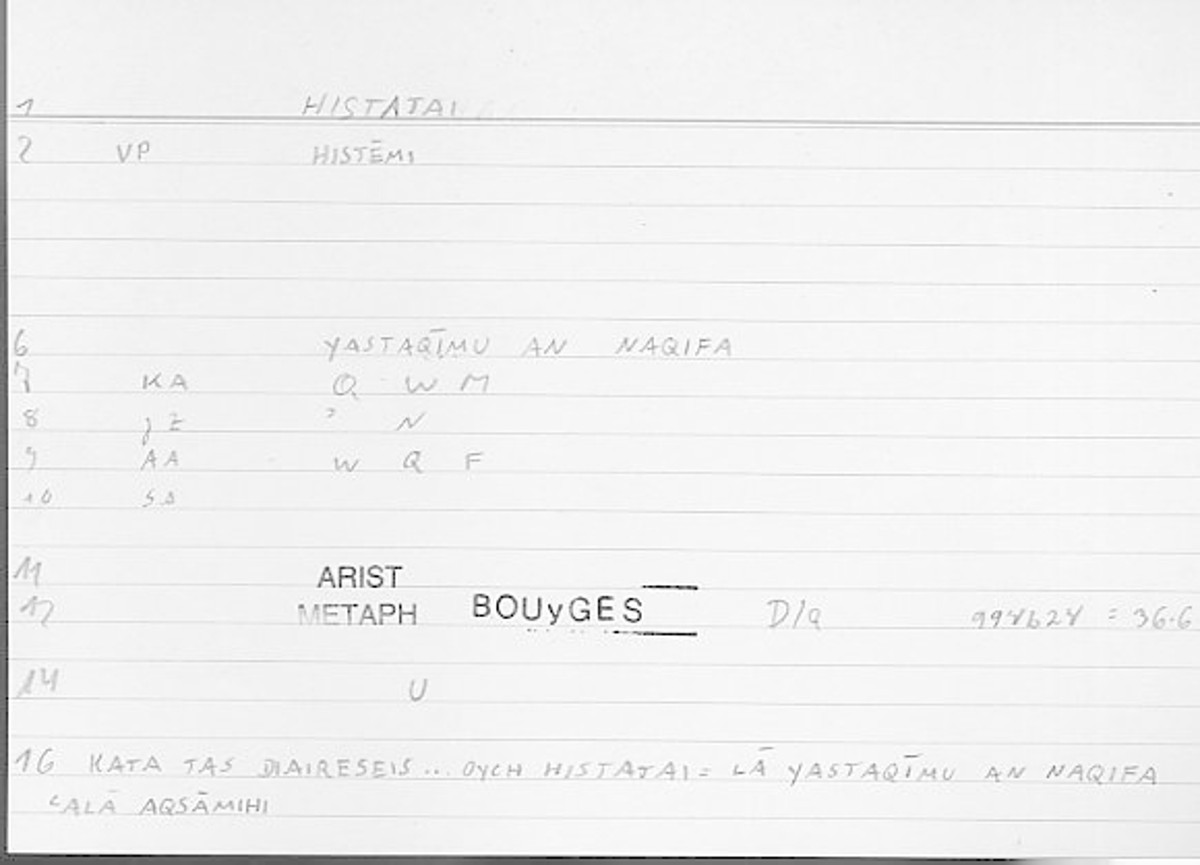 1 HISTATAI
2 VP HISTĒMI
6 YASTAQĪMU AN NAQIFA
7 KA Q W M
8 ʾ N
9 AA W Q F
10
11 ARIST
12 METAPH BOUyGES D/a 994b24 = 36.6
14 U
16 KATA TAS DIAIRESEIS... OYCH HISTATAI = LĀ YASTAQĪMU AN NAQIFA
ʿALĀ AQSĀMIHI